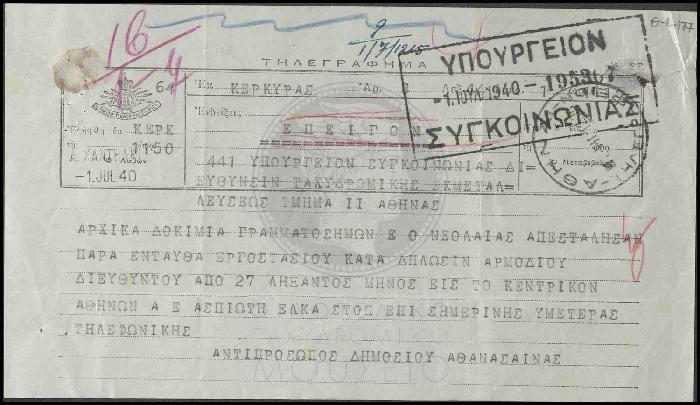 Θ-L-177
16
9
1/7/1215
ΤΗΛΕΓΡΑΦΗΜΑ
ΥΠΟΥΡΓΕΙΟΝ
-1.ΙΟΥΛ.1940·-195967
ΣΥΓΚΟΙΝΩΝΙΑΣ
64
Ἐκ ΚΕΡΚΥΡΑΣ Ἀρ. 8
Ἐνδείξεις
ΕΠΕΙΓΟΝ
ΚΕΡΚ
1150
-1. JUL 40
441 ΥΠΟΥΡΓΕΙΟΝ ΣΥΓΚΟΙΝΩΝΙΑΣ ΔΙ=
ΕΥΘΥΝΣΙΝ ΤΑΧΥΔΡΟΜΙΚΗΣ ΕΚΜΕΤΑΛ=
ΛΕΥΣΕΩΣ ΤΜΗΜΑ ΙΙ ΑΘΗΝΑΣ
ΑΡΧΙΚΑ ΔΟΚΙΜΙΑ ΓΡΑΜΜΑΤΟΣΗΜΩΝ Ε Ο ΝΕΟΛΑΙΑΣ ΑΠΕΣΤΑΛΗΣΑΝ
ΠΑΡΑ ΕΝΤΑΥΘΑ ΕΡΓΟΣΤΑΣΙΟΥ ΚΑΤΑ ΔΗΛΩΣΙΝ ΑΡΜΟΔΙΟΥ
ΔΙΕΥΘΥΝΤΟΥ ΑΠΟ 27 ΛΗΞΑΝΤΟΣ ΜΗΝΟΣ ΕΙΣ ΤΟ ΚΕΝΤΡΙΚΟΝ
ΑΘΗΝΩΝ Α Ε ΑΣΠΙΩΤΗ ΕΛΚΑ ΣΤΟΠ ΕΠΙ ΣΗΜΕΡΙΝΗΣ ΥΜΕΤΕΡΑΣ
ΤΗΛΕΦΩΝΙΚΗΣ
ΑΝΤΙΠΡΟΣΩΠΟΣ ΔΗΜΟΣΙΟΥ ΑΘΑΝΑΣΑΙΝΑΣ